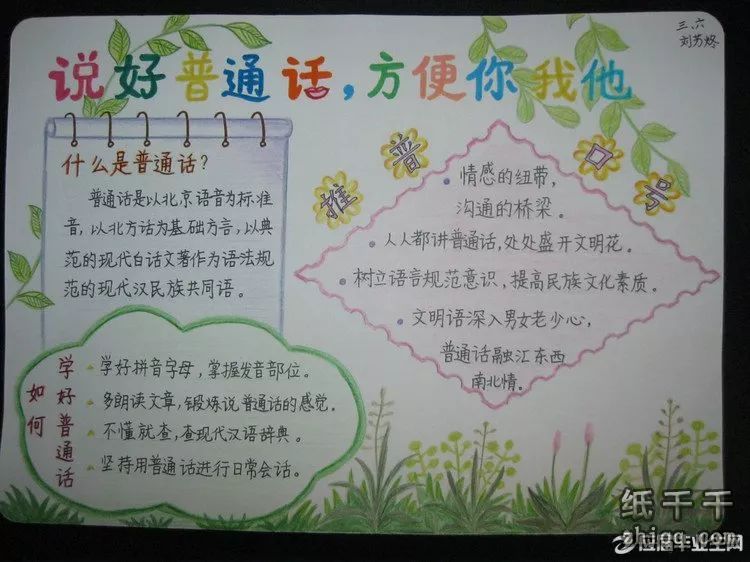 三、六
说好普通话，方便你我他
什么是普通话？
普通话是以北京语音为标准
音，以北方话为基础方言，以典
范的现代白话文著作为语法规
范的现代汉民族共同语。
推普口号
情感的纽带，
沟通的桥梁。
人人都讲普通话，处处盛开文明花。
树立语言规范意识，提高民族文化素质。
文明语深入男女老少心，
普通话融汇东西
南北情。
如何
学好普通话
学好拼音字母，掌握发音部位。
多朗读文章，锻炼说普通话的感觉。
不懂就查，查现代汉语辞典。
坚持用普通话进行日常会话。
纸千千
zhiqq.com
应届毕业生网